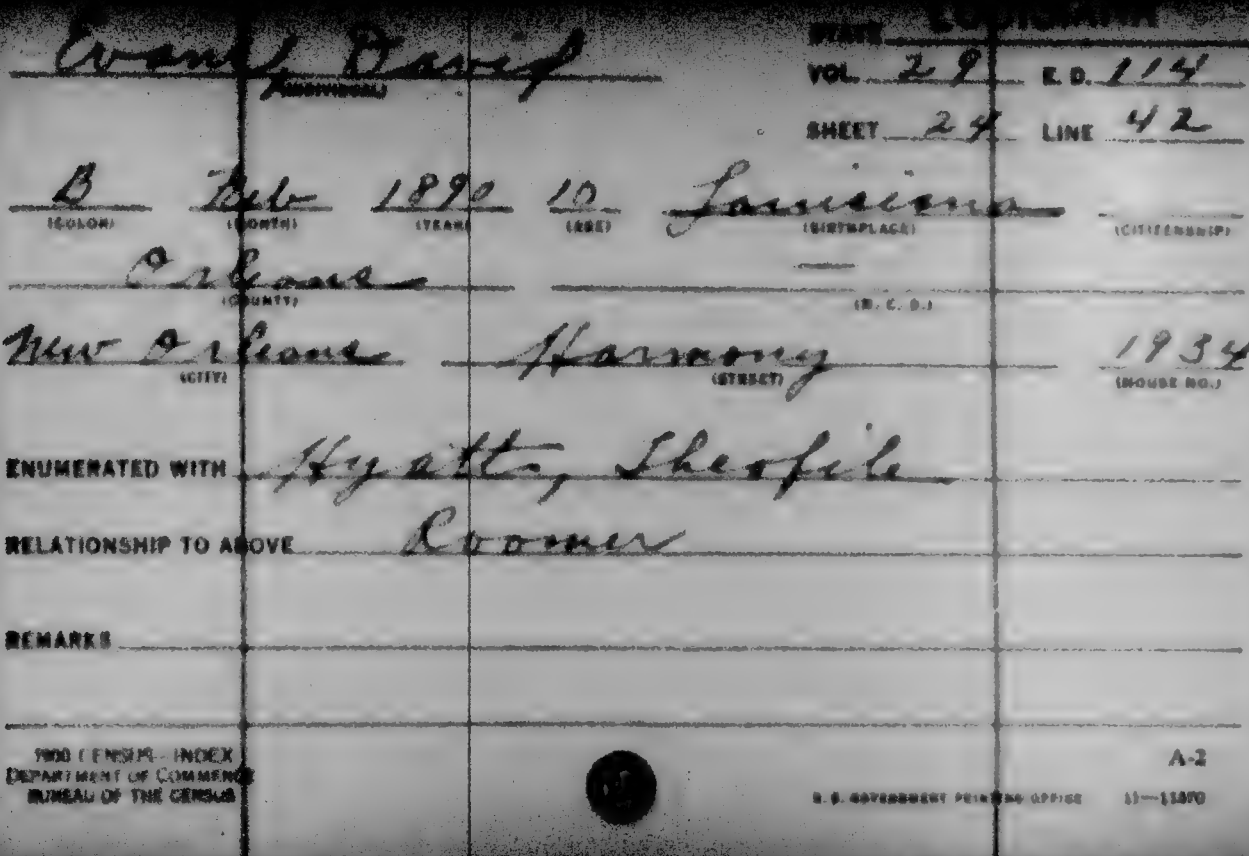 STATE LOUISIANA
Evans, David
(INDIVIDUAL)
VOL. 29 E. D. 114
SHEET 24 LINE 42
B Feb 1890 10 Louisiana
(COLOR) (MONTH) (YEAR) (AGE) (BIRTHPLACE) (CITIZENSHIP)
Orleans —
(COUNTY) (M. C. D.)
New Orleans Harmony 1934
(CITY) (STREET) (HOUSE NO.)
ENUMERATED WITH Hyatt, Theofile
RELATIONSHIP TO ABOVE Roomer
REMARKS
1900 CENSUS—INDEX
DEPARTMENT OF COMMERCE
BUREAU OF THE CENSUS
A-2
U. S. GOVERNMENT PRINTING OFFICE